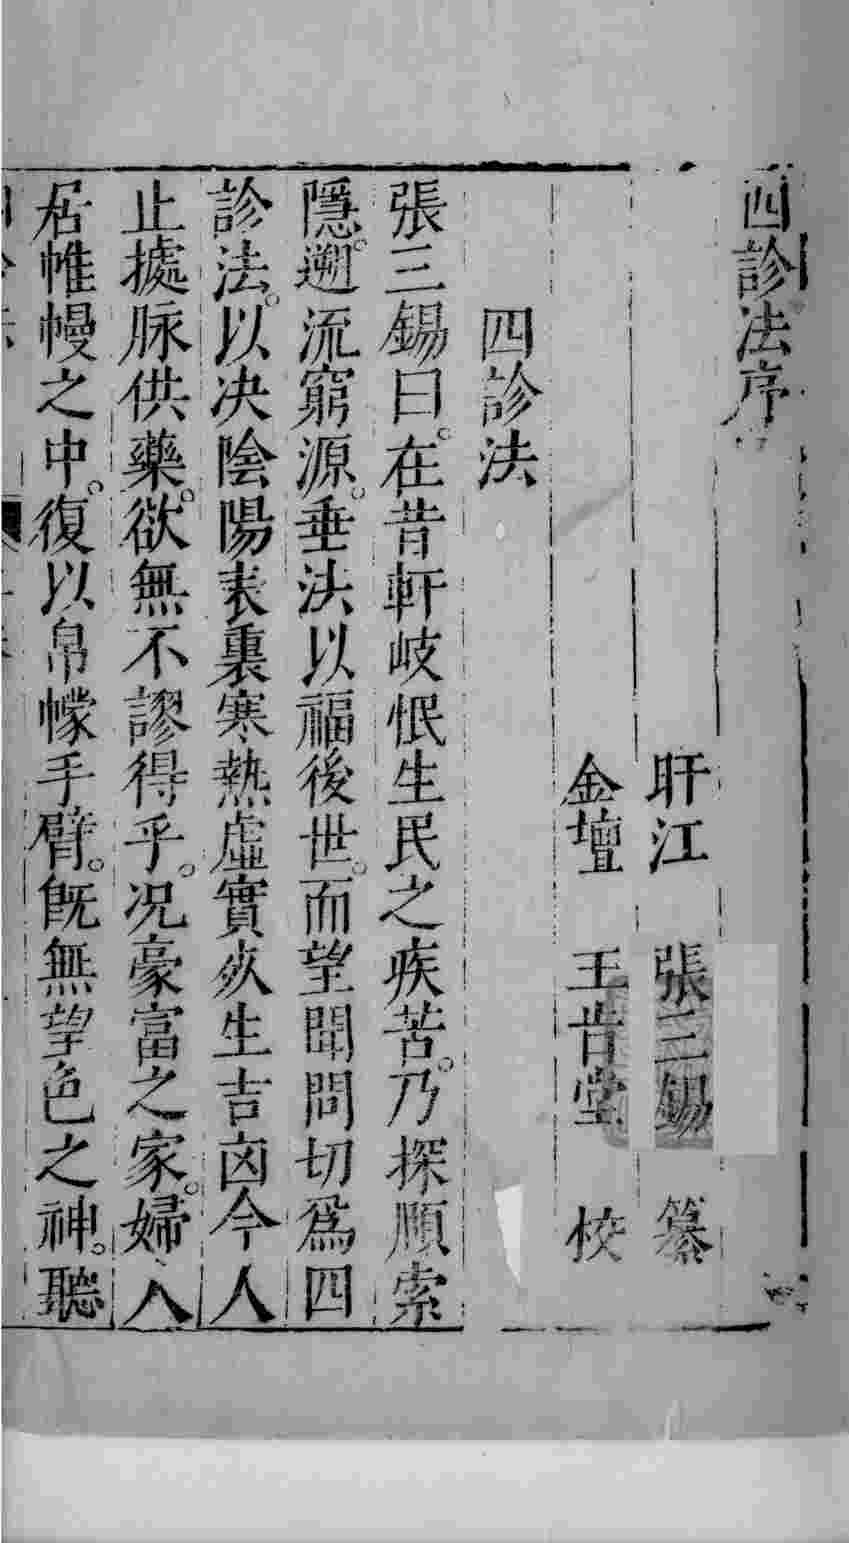 四診法序
盱江 張三錫 纂
金壇 王肯堂 校
四診法
張三錫曰。在昔軒岐憫生民之疾苦。乃探頥索
隱。遡流窮源。垂法以福後世。而望聞問切爲四
診法。以决陰陽表裏寒熱虛實死生吉凶今人
止據脉供藥。欲無不謬得乎。况豪富之家。婦人
居帷幔之中。復以帛幪手臂。旣無望色之神。聽